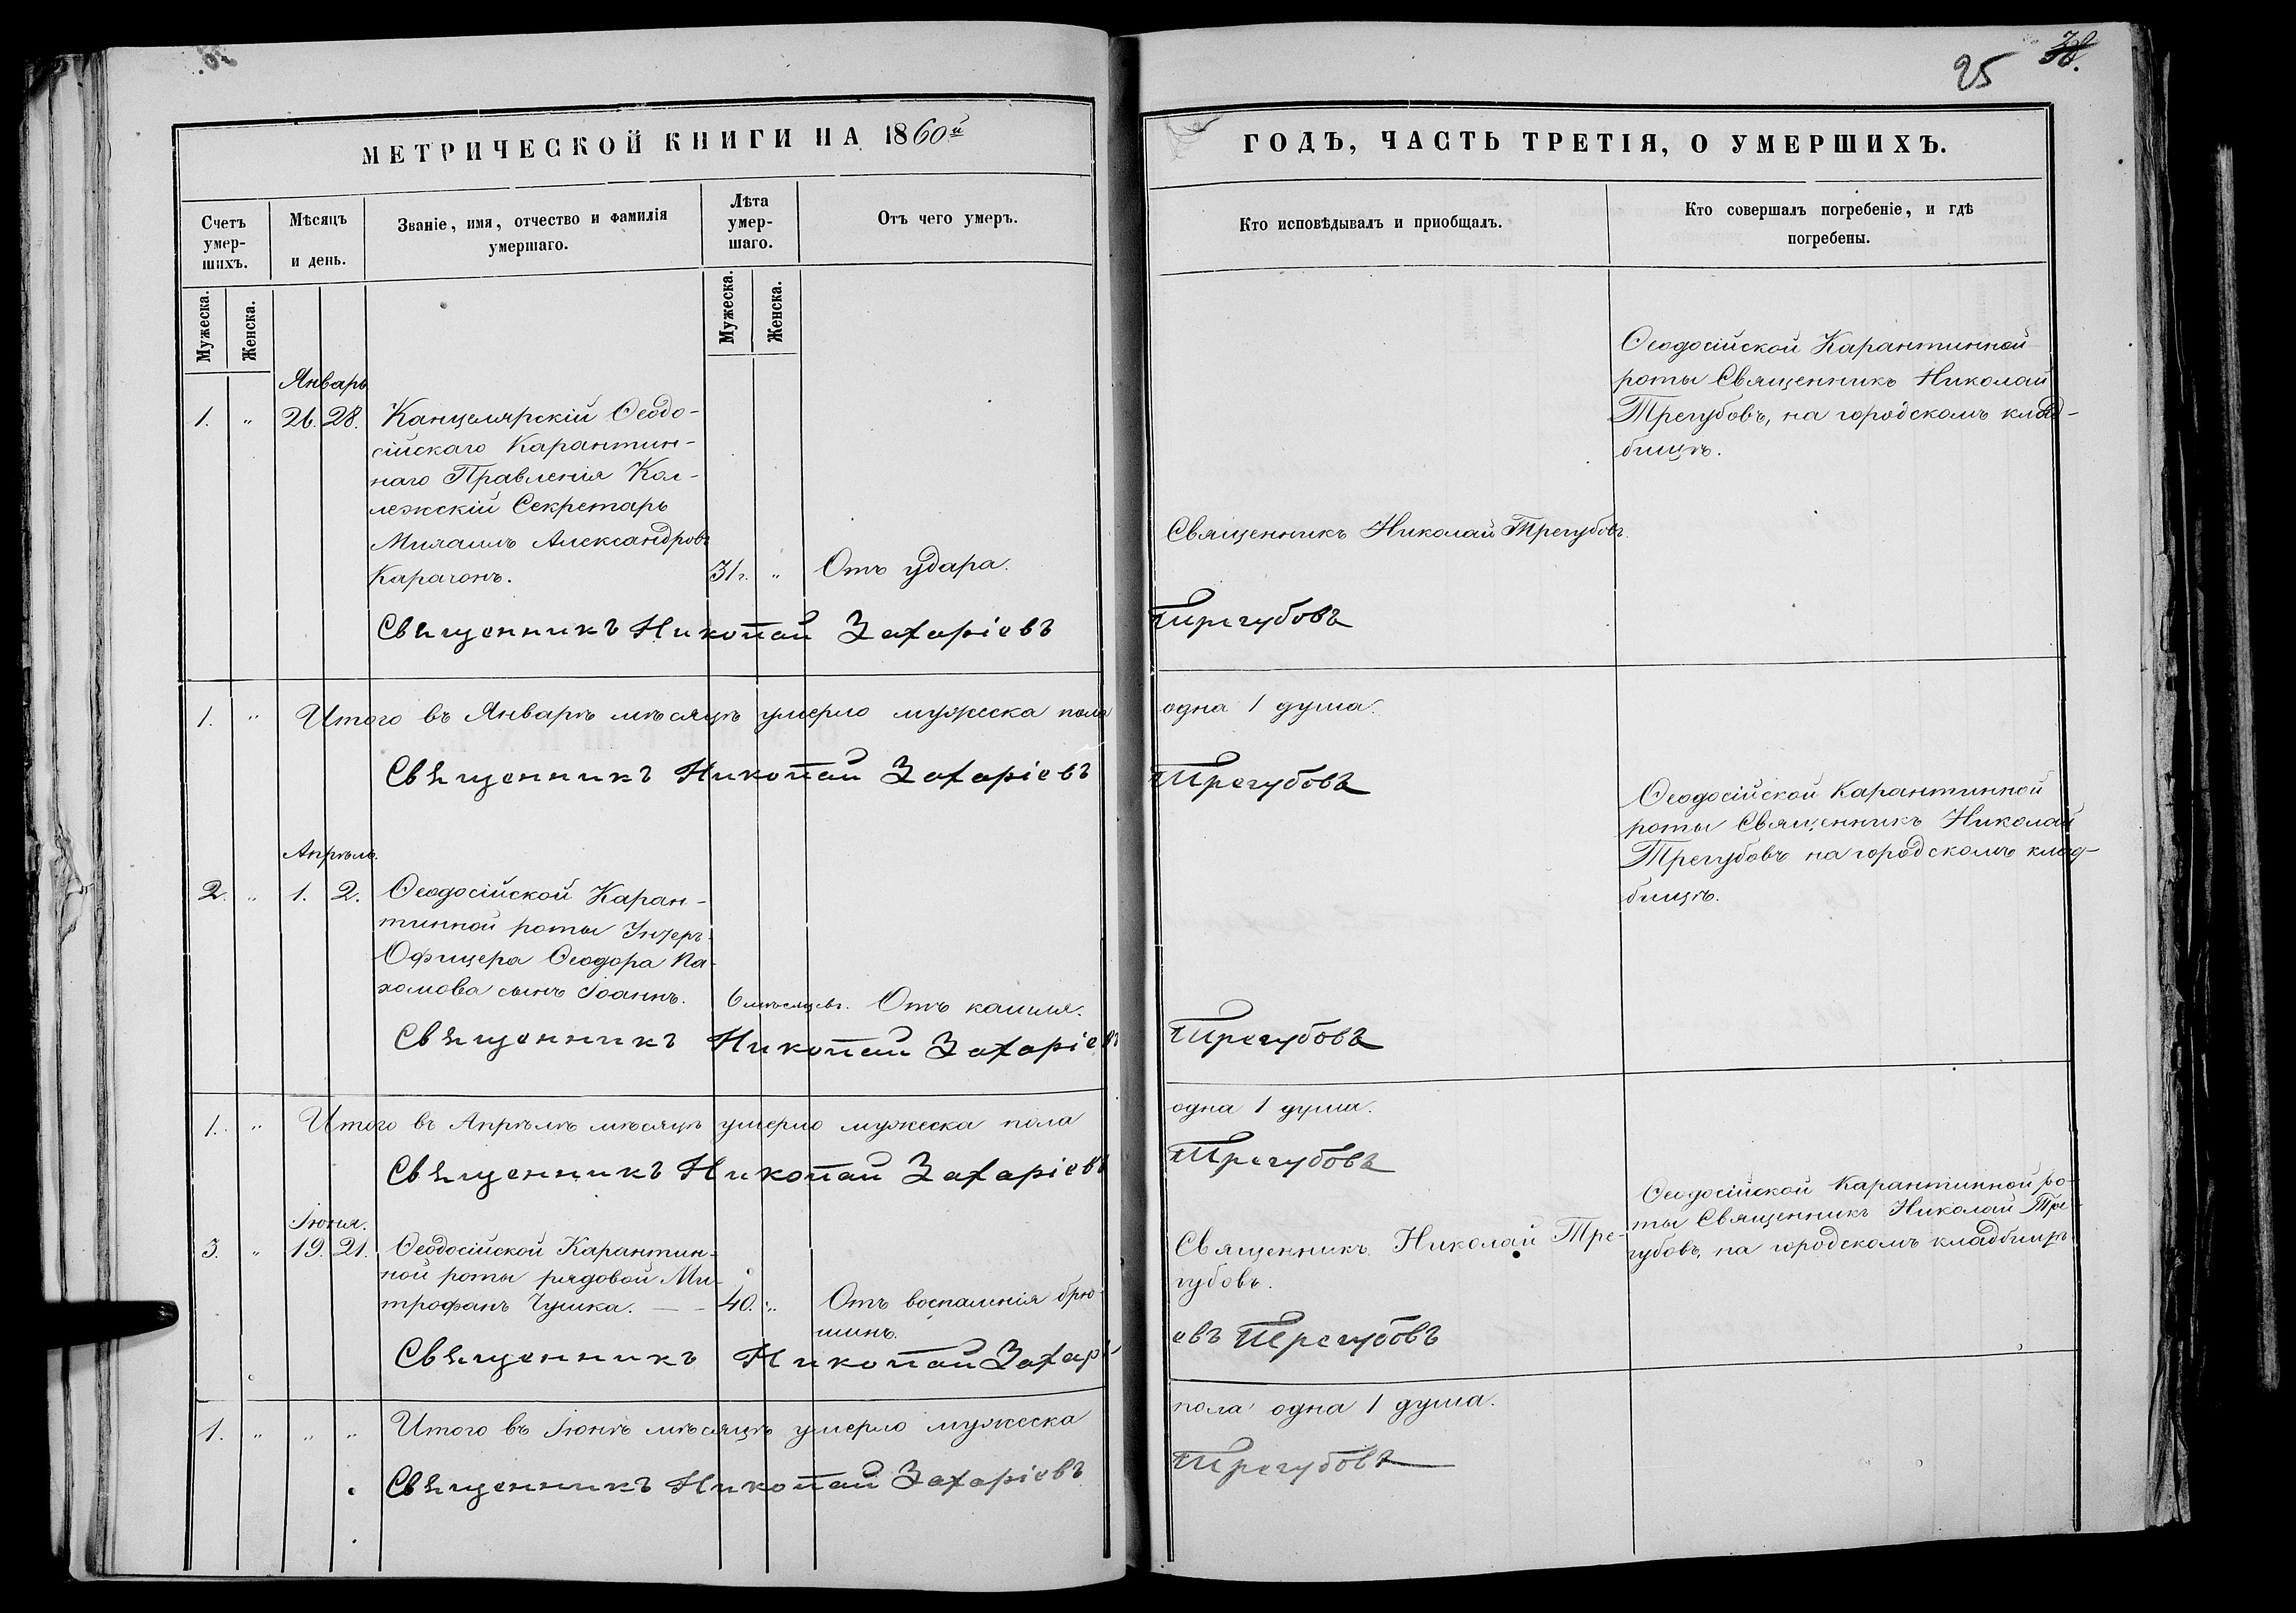 25 38.
МЕТРИЧЕСКОЙ КНИГИ НА 1860й
ГОДЪ, ЧАСТЬ ТРЕТІЯ, О УМЕРШИХЪ.
Счетъ умер-шихъ.
Мѣсяцъ и день.
Званіе, имя, отчество и фамилія умершаго.
Лѣта умер-шаго.
Отъ чего умеръ.
Кто исповѣдывалъ и приобщалъ.
Кто совершалъ погребеніе, и гдѣ погребены.
Мужеска. Женска.
Мужеска. Женска.
Январь
1. " 26. 28. Канцелярскій Ѳеодо-
сійскаго Карантин-
наго Правленія Кол-
лежскій Секретарь
Михаилъ Александровъ
Карагонъ. 31г. " Отъ удара.
Священникъ Николай Трегубовъ.
Ѳеодосійской Карантинной
роты Священникъ Николай
Трегубовъ, на городскомъ клад-
бищѣ.
Священникъ Николай Захаріевъ Трегубовъ
1. " Итого въ Январѣ мѣсяцѣ умерло мужеска пола одна 1 душа.
Священникъ Николай Захаріевъ Трегубовъ
Апрѣль.
2. " 1. 2. Ѳеодосійской Каран-
тинной роты Унтеръ
Офицера Ѳеодора Па-
хомова сынъ Іоаннъ. 6 мѣсяцевъ. Отъ кашля.
Ѳеодосійской Карантинной
роты Священникъ Николай
Трегубовъ на городскомъ клад-
бищѣ.
Священникъ Николай Захаріевъ Трегубовъ
1. " Итого въ Апрѣлѣ мѣсяцѣ умерло мужеска пола одна 1 душа.
Священникъ Николай Захаріевъ Трегубовъ
Іюня.
3. " 19. 21. Ѳеодосійской Карантин-
ной роты рядовой Ми-
трофанъ Чушка. — - 40. " Отъ воспаленія брю-
шины.
Священникъ Николай Тре-
губовъ.
Ѳеодосійской Карантинной ро-
ты Священникъ Николай Тре-
губовъ, на городскомъ кладбищѣ.
Священникъ Николай Захарі евъ Трегубовъ
1. " " " Итого въ Іюнѣ мѣсяцѣ умерло мужеска пола одна 1 душа.
Священникъ Николай Захаріевъ Трегубовъ